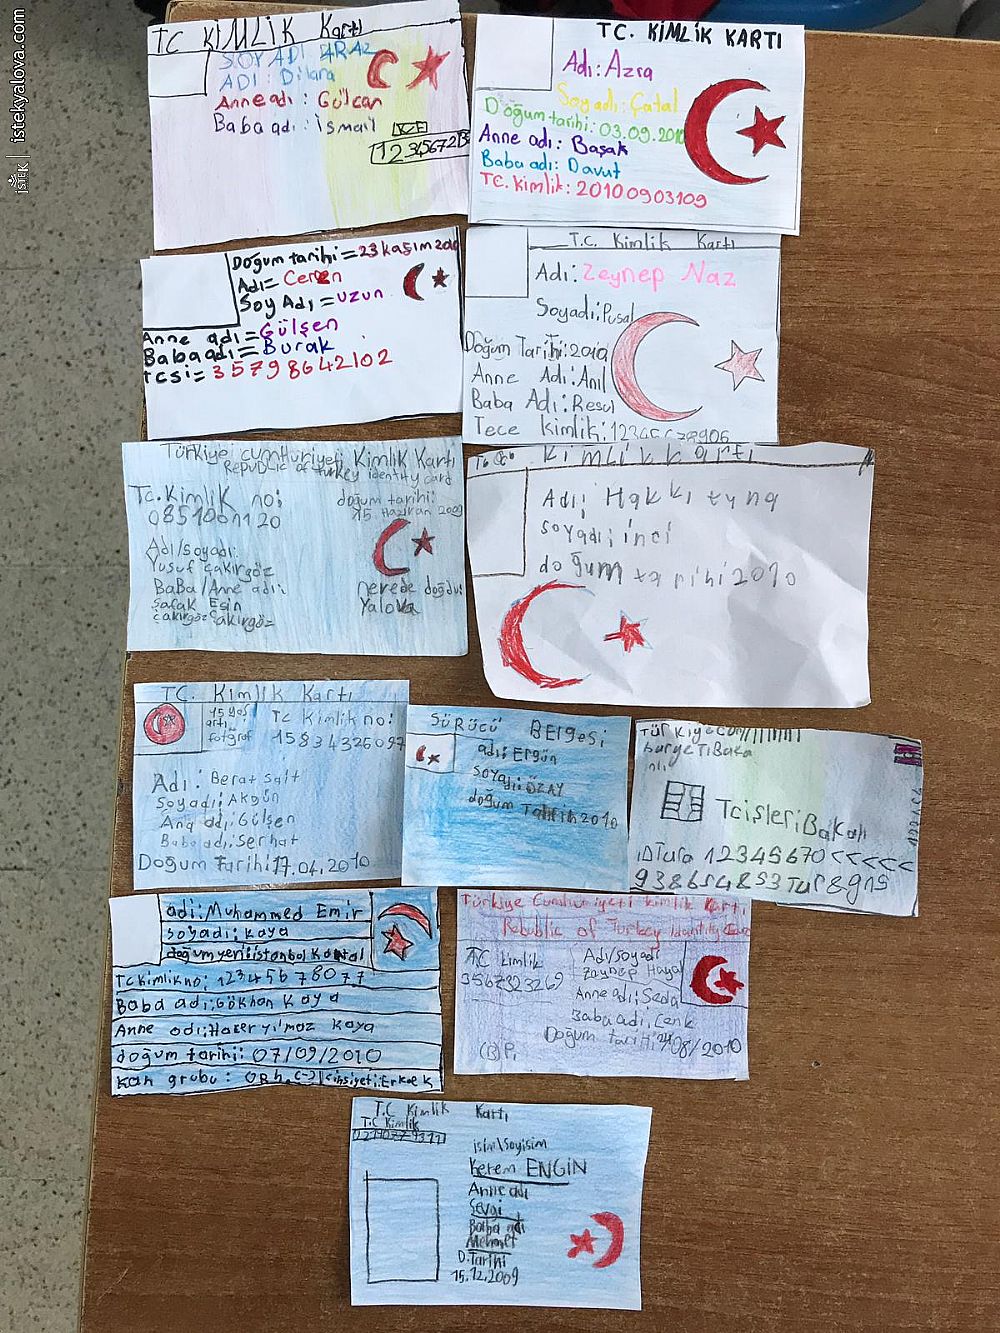 istekyalova.com
İSTEK
TC KİMLİK Kartı
SOYADI ARAZ
ADI : Dilara
Anne adı : Gülcan
Baba adı : ismail
TC. KİMLİK KARTI
Adı : Azra
Soyadı : Çatal
Doğum tarihi : 03.09.2010
Anne adı : Başak
Baba adı : Davut
TC. kimlik : 20100903109
Doğum tarihi = 23 kasım
Adı = Ceren
Soy Adı = uzun
Anne adı = Gülşen
Baba adı = Burak
tcsi = 35798642102
T.C. Kimlik Kartı
Adı : Zeynep Naz
Soyadı : Pusal
Doğum Tarihi : 2010
Anne Adı : Anıl
Baba Adı : Resul
Tece kimlik :
Türkiye cumhuriyeti Kimlik Kartı
Republic of turkey identity card
Tc. Kimlik no:
08510011120
doğum tarihi:
15 Haziran 2009
Adı/soyadı:
Yusuf çakırgöz
BaBa/Anne adı:
Şafak Esin
çakırgöz çakırgöz
nerede doğdu:
Yalova
kimlik kartı
Adı; Hakkı tuna
soyadı; inci
doğum tarihi 2010
TC. Kimlik Kartı
15 yaş
artı
fotğraf
Tc Kimlik no:
15834326097
Adı : Berat Sait
Soyadı : Akgün
Ana adı : Gülşen
Baba adı : Serhat
Doğum Tarihi : 17.04.2010
SÜRÜCÜ BElgesi
adı: Ergün
soyadı: ÖZAY
doğum Tahrih 2010
Türkiyecum
huryeTiBaka
nlı
TcişleriBakalı
IDTura 12345670<<<<<
938654853Tur&gns
adi: Muhammed Emir
soyadı; kaya
doğum yeri: istanbol kartal
Tc kimlik no: 12345678077
Baba adı; Gökhan Kaya
Anne adı; Hacer yılmaz kaya
doğum tarihi: 07/09/2010
kan grubu : ORh(-) cinsiyeti: Erkek
Türkiye Cumhuriyeti kimlik kartı
Rebublic of Turkey identity
TC kimlik
3567323269
Adı/soyadı
Zeynep Hayal
Anne adı: Seda
Baba adı; Cenk
Doğum tarihi:
T.C Kimlik Kartı
T.C Kimlik
isim\Soyisim
Kerem ENGİN
Anne adı
Sevgi
Baba adı
Mehmet
D.Tarihi
15.12.2009